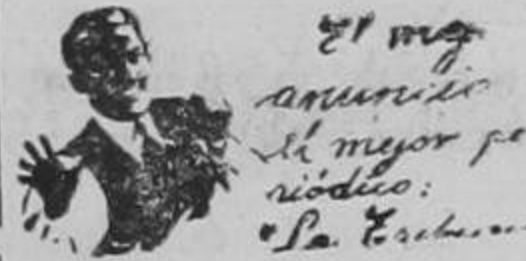 El mej
anuncio
el mejor pe
riódico:
"La Tribuna